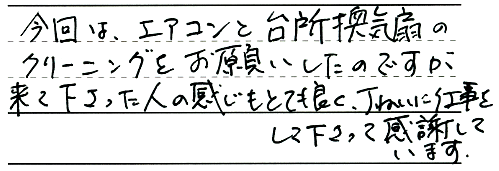 今回は、エアコンと台所換気扇の
クリーニングをお願いしたのですが、
来て下さった人の感じもとても良く、丁ねいに仕事を
して下さって感謝して
います。